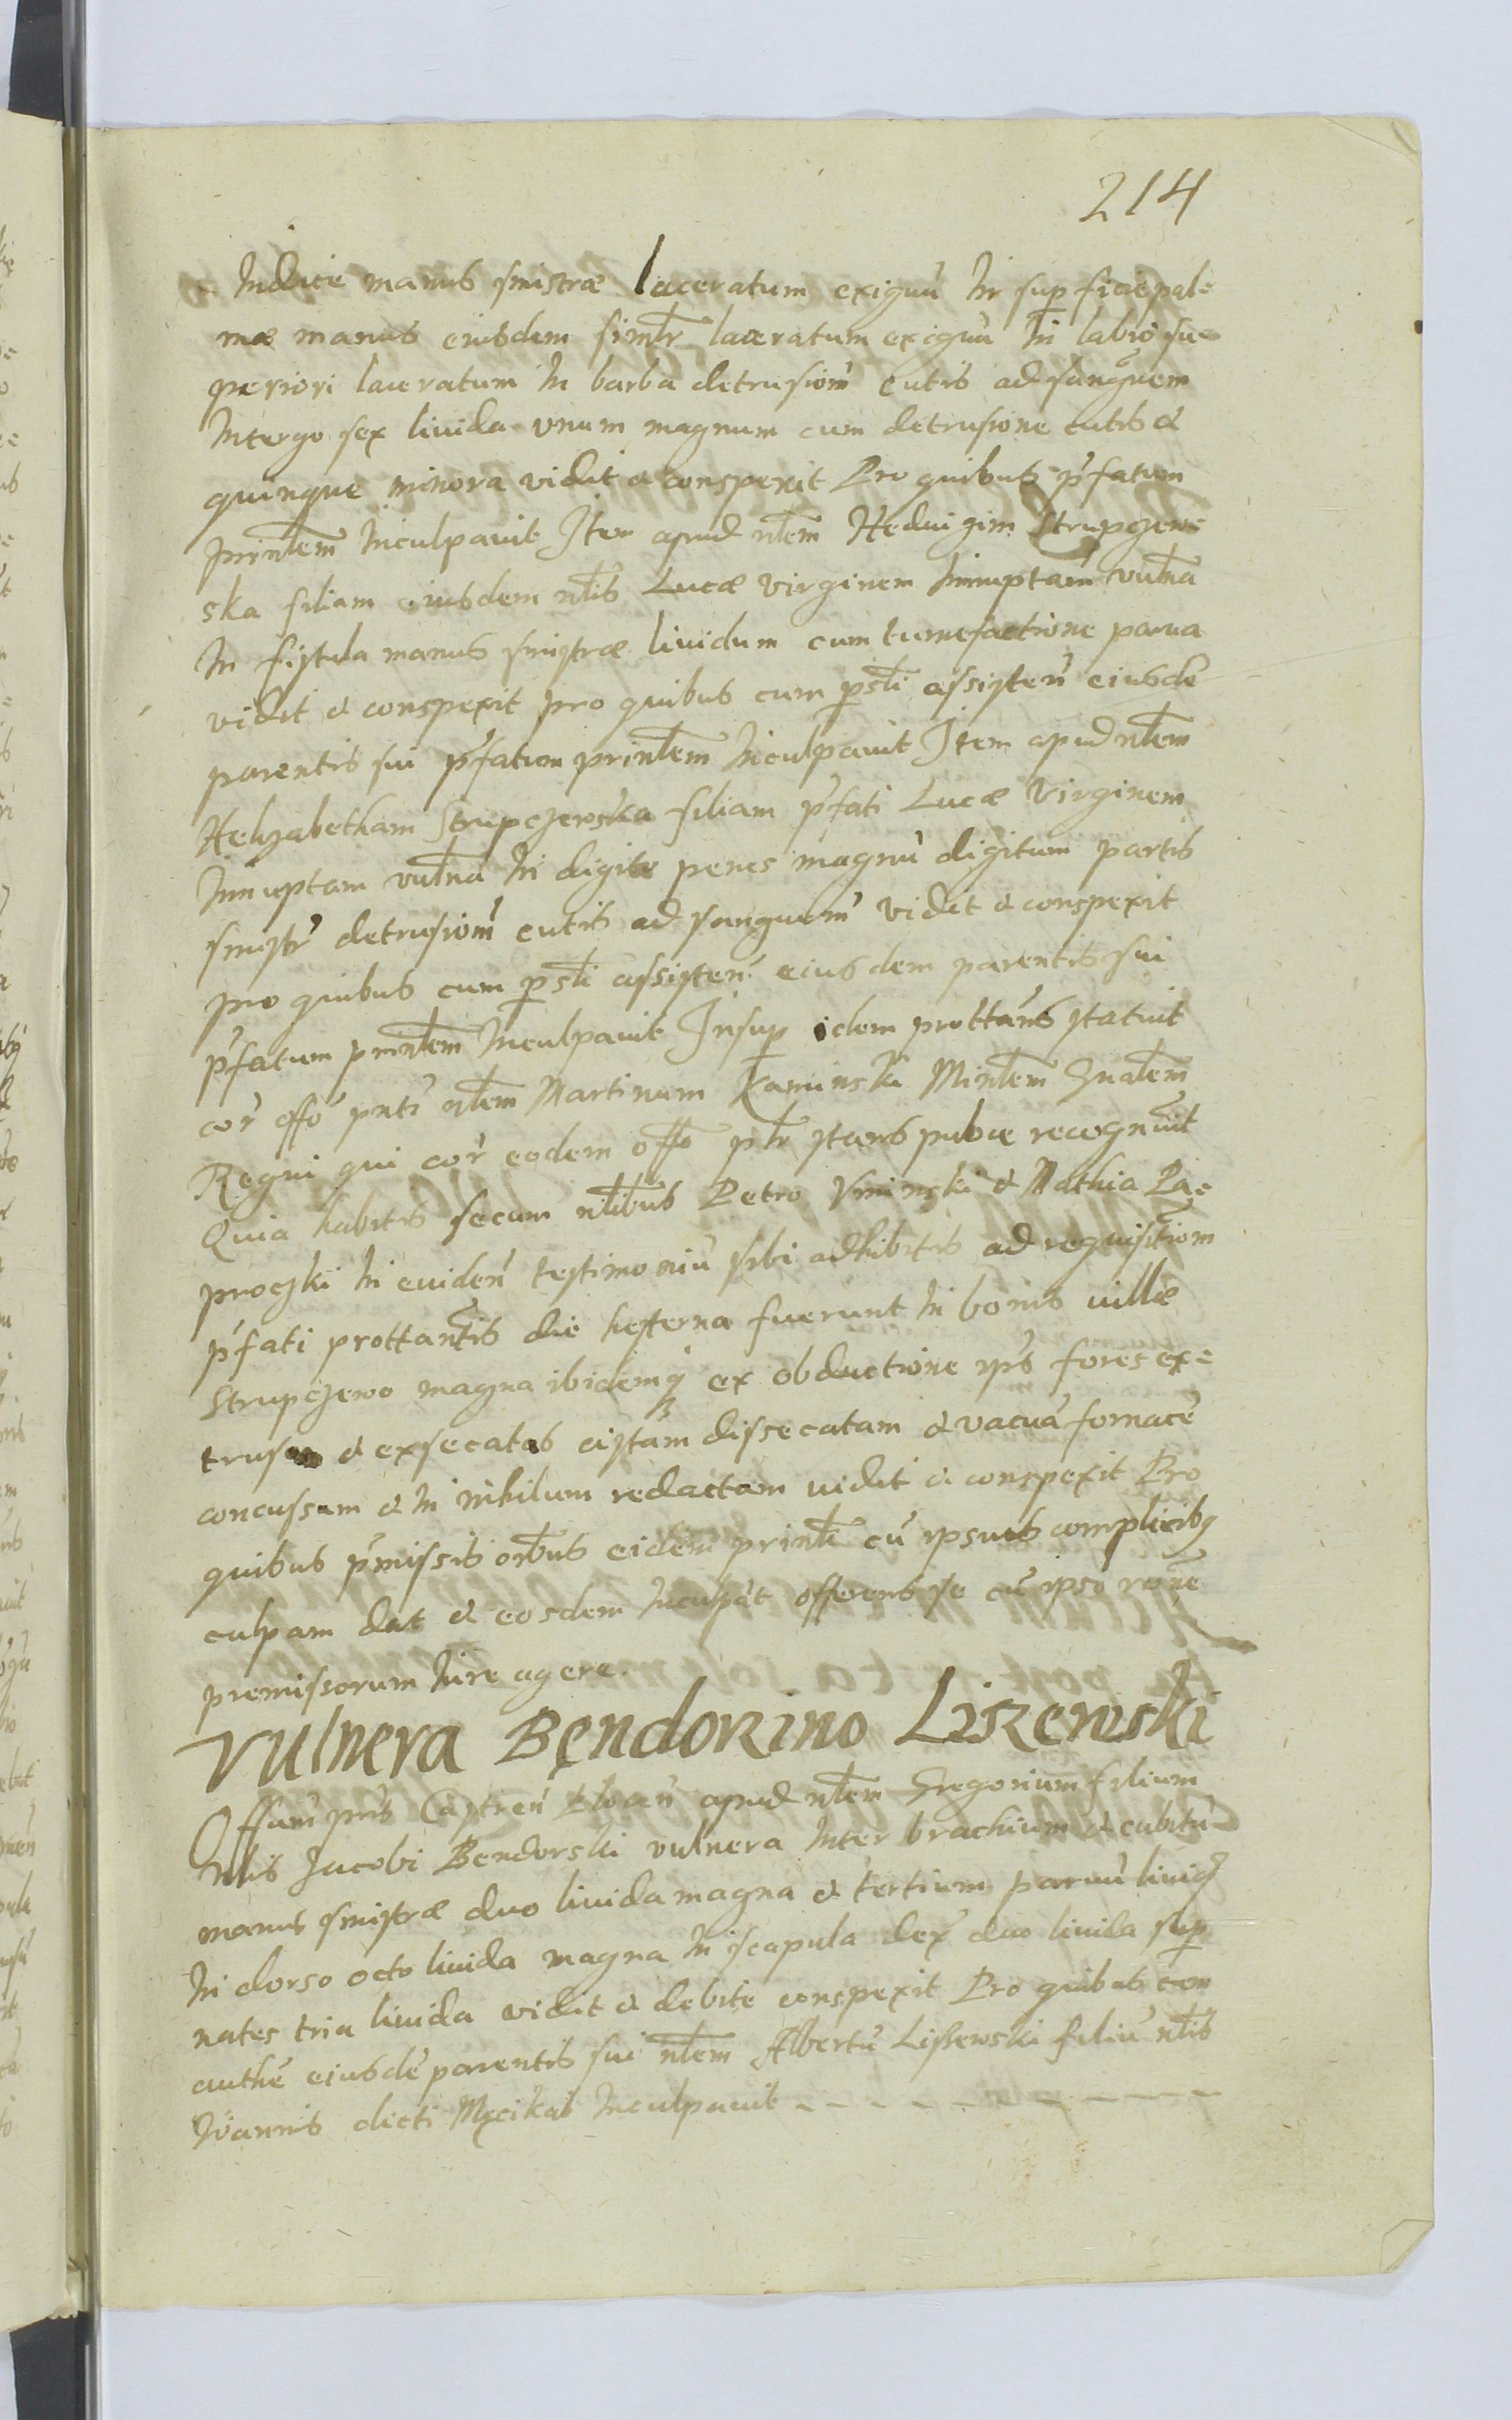 214
Indice manus sinistræ laceratum exiguū In superficie pal=
mæ manus eiusdem simlr laceratum exiguū In labio su=
periori laceratum In barba detrusionē cutis ad sanguinem
In tergo sex liuida vnum magnum cum detrusione cutis &
quinque minora vidit & conspexit Pro quibus p̄fatum
prinlem Inculpauit Item apud nlem Heduigim Strupczew=
ska filiam eiusdem nlis Lucæ virginem Innuptam vulnā
In fistula manus sinistræ liuidum cum tumefactione parua
vidit & conspexit pro quibus cum psli assisten eiusdē
parentis sui p̄fatum prinlem Inculpauit Item apud nlem
Helizabetham Strupczewska filiam p̄fati Lucæ Virginem
Innuptam vulnā In digito penes magnū digitum partis
sinistr detrusionē cutis ad sanguinē vidit & conspexit
pro quibus cum psli assisten eiusdem parentis sui
p̄fatum prinlem Inculpauit Insup idem prottans statuit
cor offo pnti nlem Martinum Kaminski Minlem Gnalem
Regni qui cor eodem offo plr stans publce recognuit
Quia habitis secum nlibus Petro Vminski & Mathia Pa=
proczki In euiden testimoniū sibi adhibitis ad requisitiom
p̄fati prottantis die hesterna fuerunt In bonis villæ
Strupczewo magna ibidemq ex obductione ips fores ex=
trusas & exsecatas cistam dissecatam & vacuā fornacē
concussam & In nihilum redactam vidit & conspexit Pro
quibus p̄missis oibus eidem prinli cū ipsius complicibq
culpam dat & eosdem Inculpat offerens se cū ipso rone
premissorum Iure agere.
Vulnera Bendorzino Liszewski
Offium pns Castren Plocen apud nlem Gregorium filium
nlis Jacobi Bendorski vulnera Inter brachium & cubitū
manus sinistræ duo liuida magna & tertium paruū liuid
In dorso octo liuida magna In scapula dex duo liuida sup
nates tria liuida vidit & debite conspexit Pro quibus cum
authē eiusdē parentis sui nlem Albertū Lissewski filiū nlis
Ioannis dicti Mzcikat Inculpauit